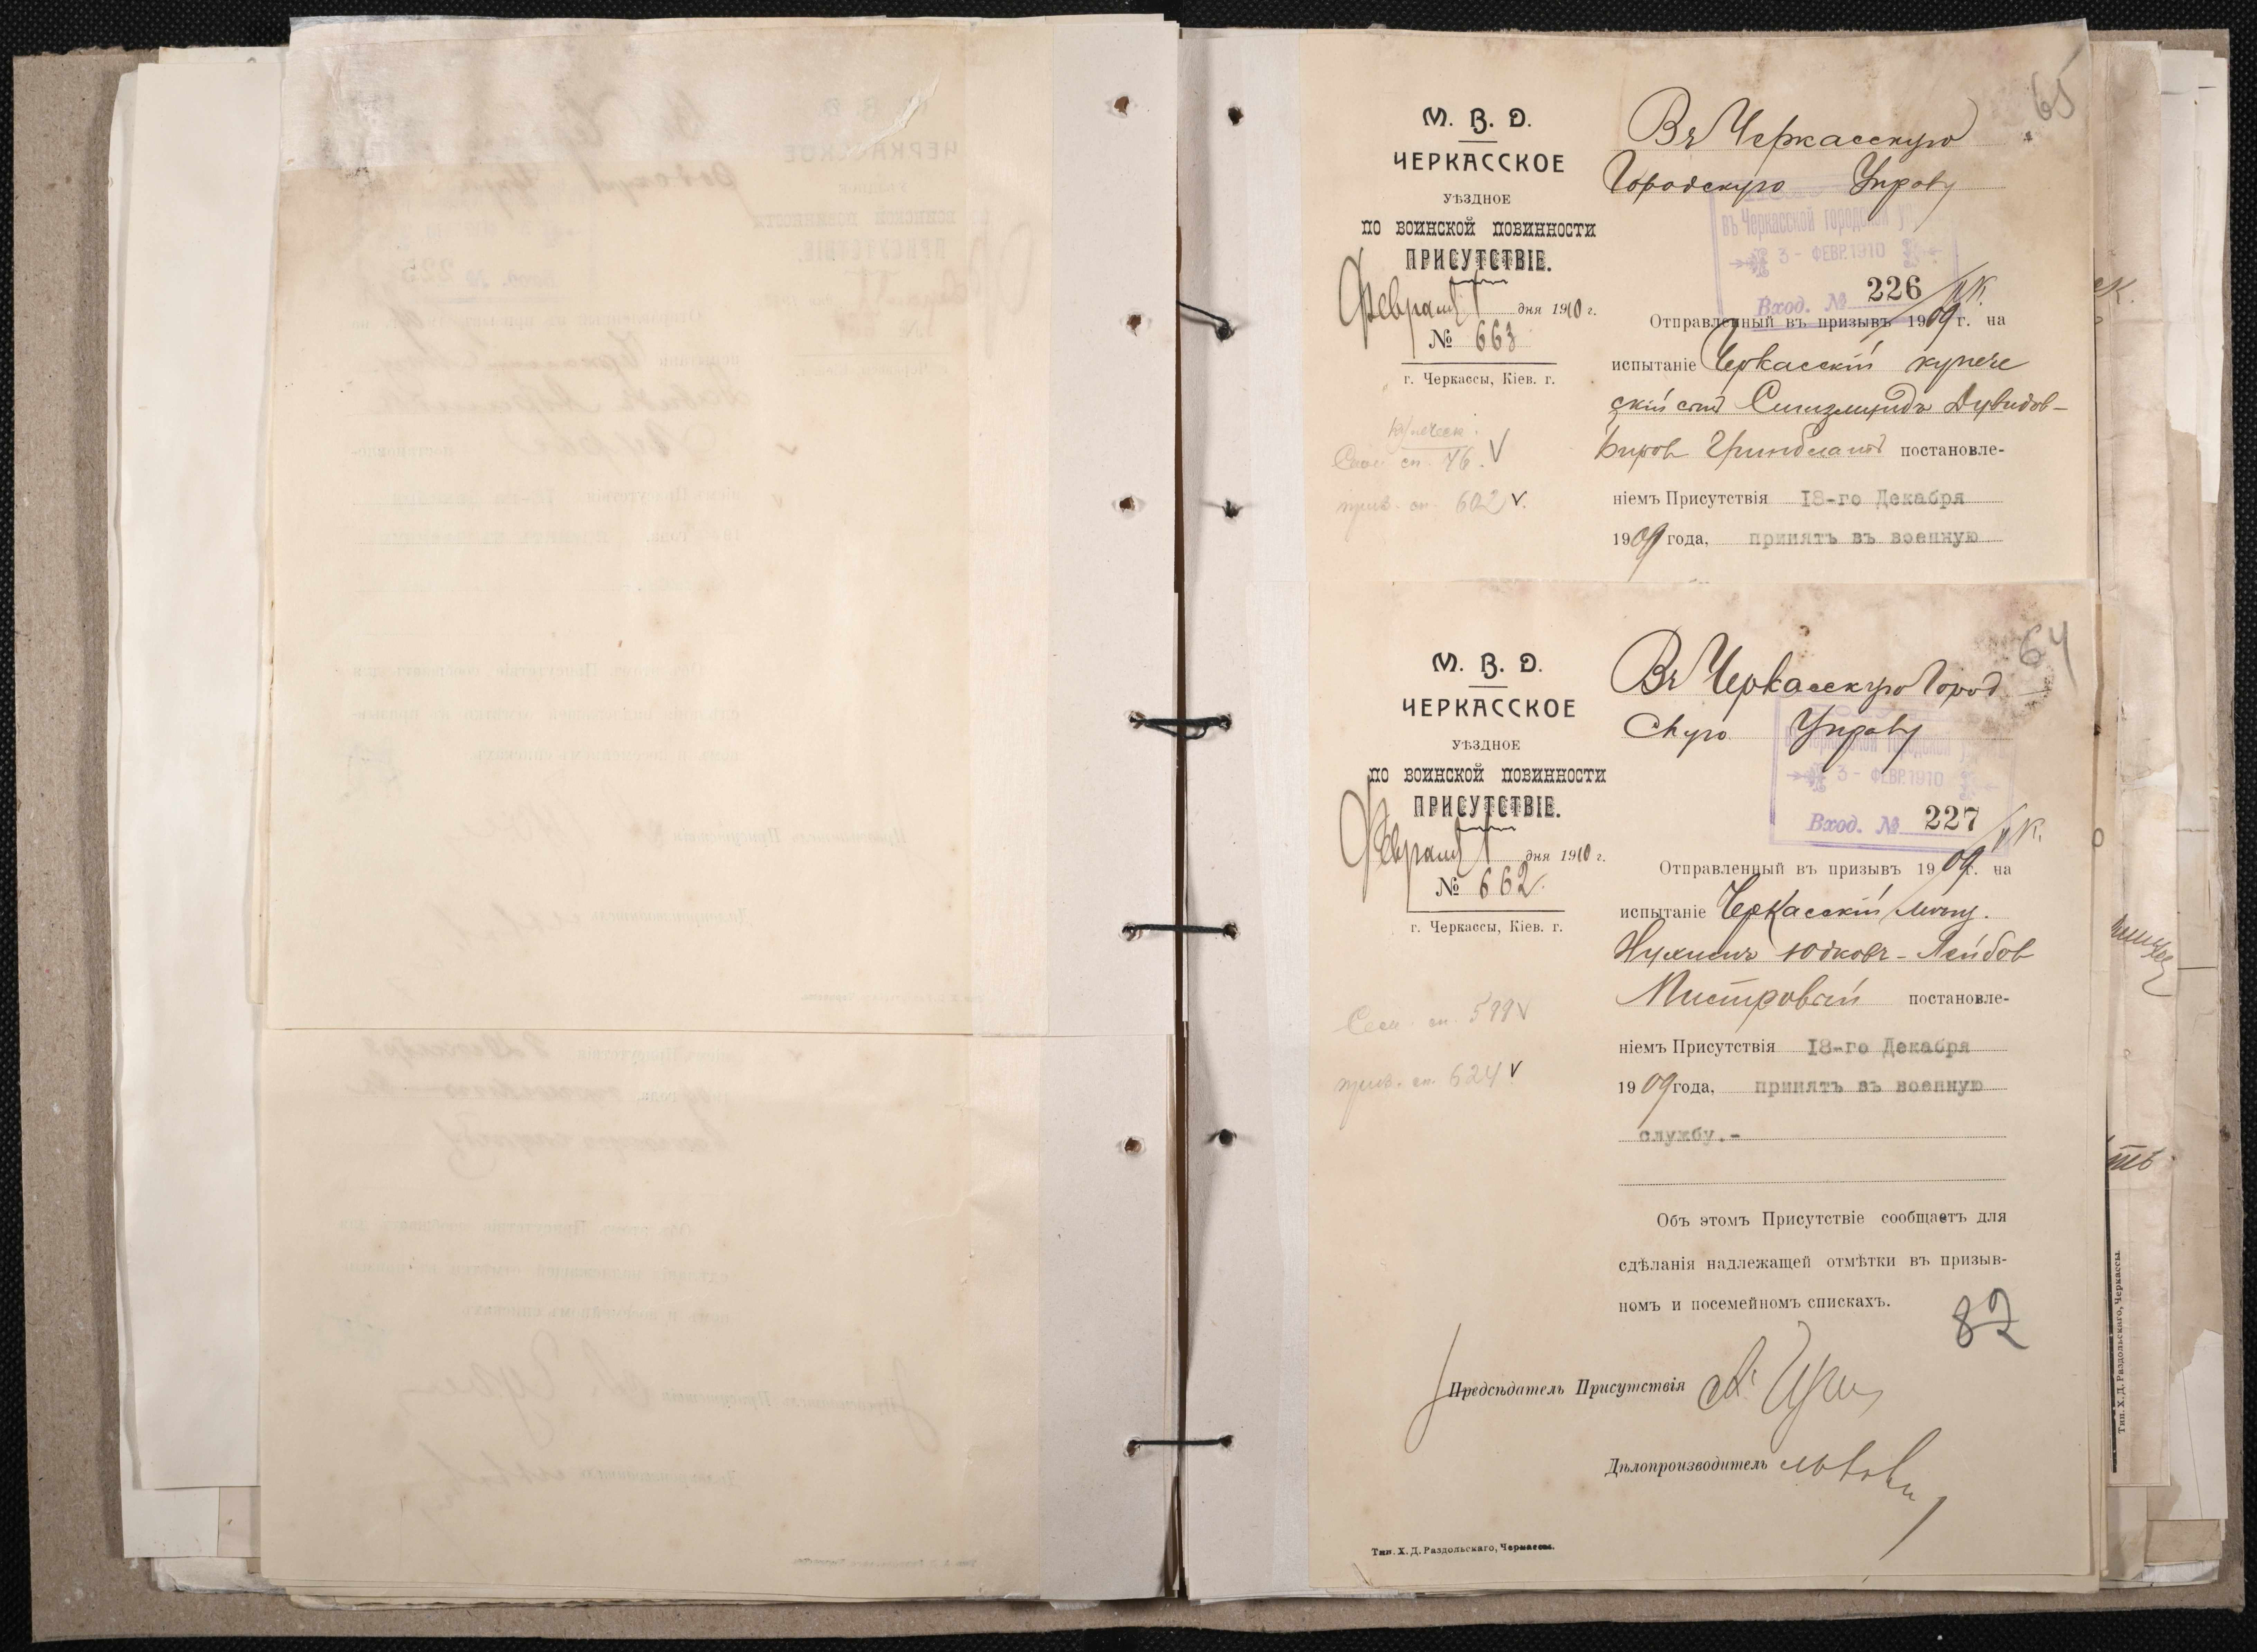 65
М. В. Д.
ЧЕРКАССКОЕ
УѢЗДНОЕ
ПО ВОИНСКОЙ ПОВИННОСТИ
ПРИСУТСТВІЕ.
Февраля 1 дня 1910 г.
№ 663
г. Черкассы, Кіев. г.
Купеческ.
Сем. сп. 46. V
приз. сп. 602 V.
Въ Черкасскую
Городскую Управу
въ Черкасской городской
3 - ФЕВР. 1910
Вход. № 226
Отправленный въ призывъ 1909 г. на
испытаніе Черкасскій купече
скій сынъ Дувидов-
Гринблатъ постановле-
ніемъ Присутствія 18-го Декабря
1909 года, принятъ въ военную
64
М. В. Д.
ЧЕРКАССКОЕ
УѢЗДНОЕ
ПО ВОИНСКОЙ ПОВИННОСТИ
ПРИСУТСТВІЕ.
Февраля 1 дня 1910 г.
№ 662
г. Черкассы, Кіев. г.
Сем. сп. 599 V
приз. сп. 624 V
Въ Черкасскую Город
скую Управу
3 - ФЕВР. 1910
Вход. № 227
Отправленный въ призывъ 1909 г. на
испытаніе Черкасскій мѣщ.
Нухимъ Юдковъ-Лейбов
Мистровой постановле-
ніемъ Присутствія 18-го Декабря
1909 года, принятъ въ военную
службу.-
Объ этомъ Присутствіе сообщаетъ для
сдѣланія надлежащей отмѣтки въ призыв-
номъ и посемейномъ спискахъ.
82
Предсѣдатель Присутствія
Дѣлопроизводитель
Тип. Х. Д. Раздольскаго, Черкассы.
Тип. Х. Д. Раздольскаго, Черкассы